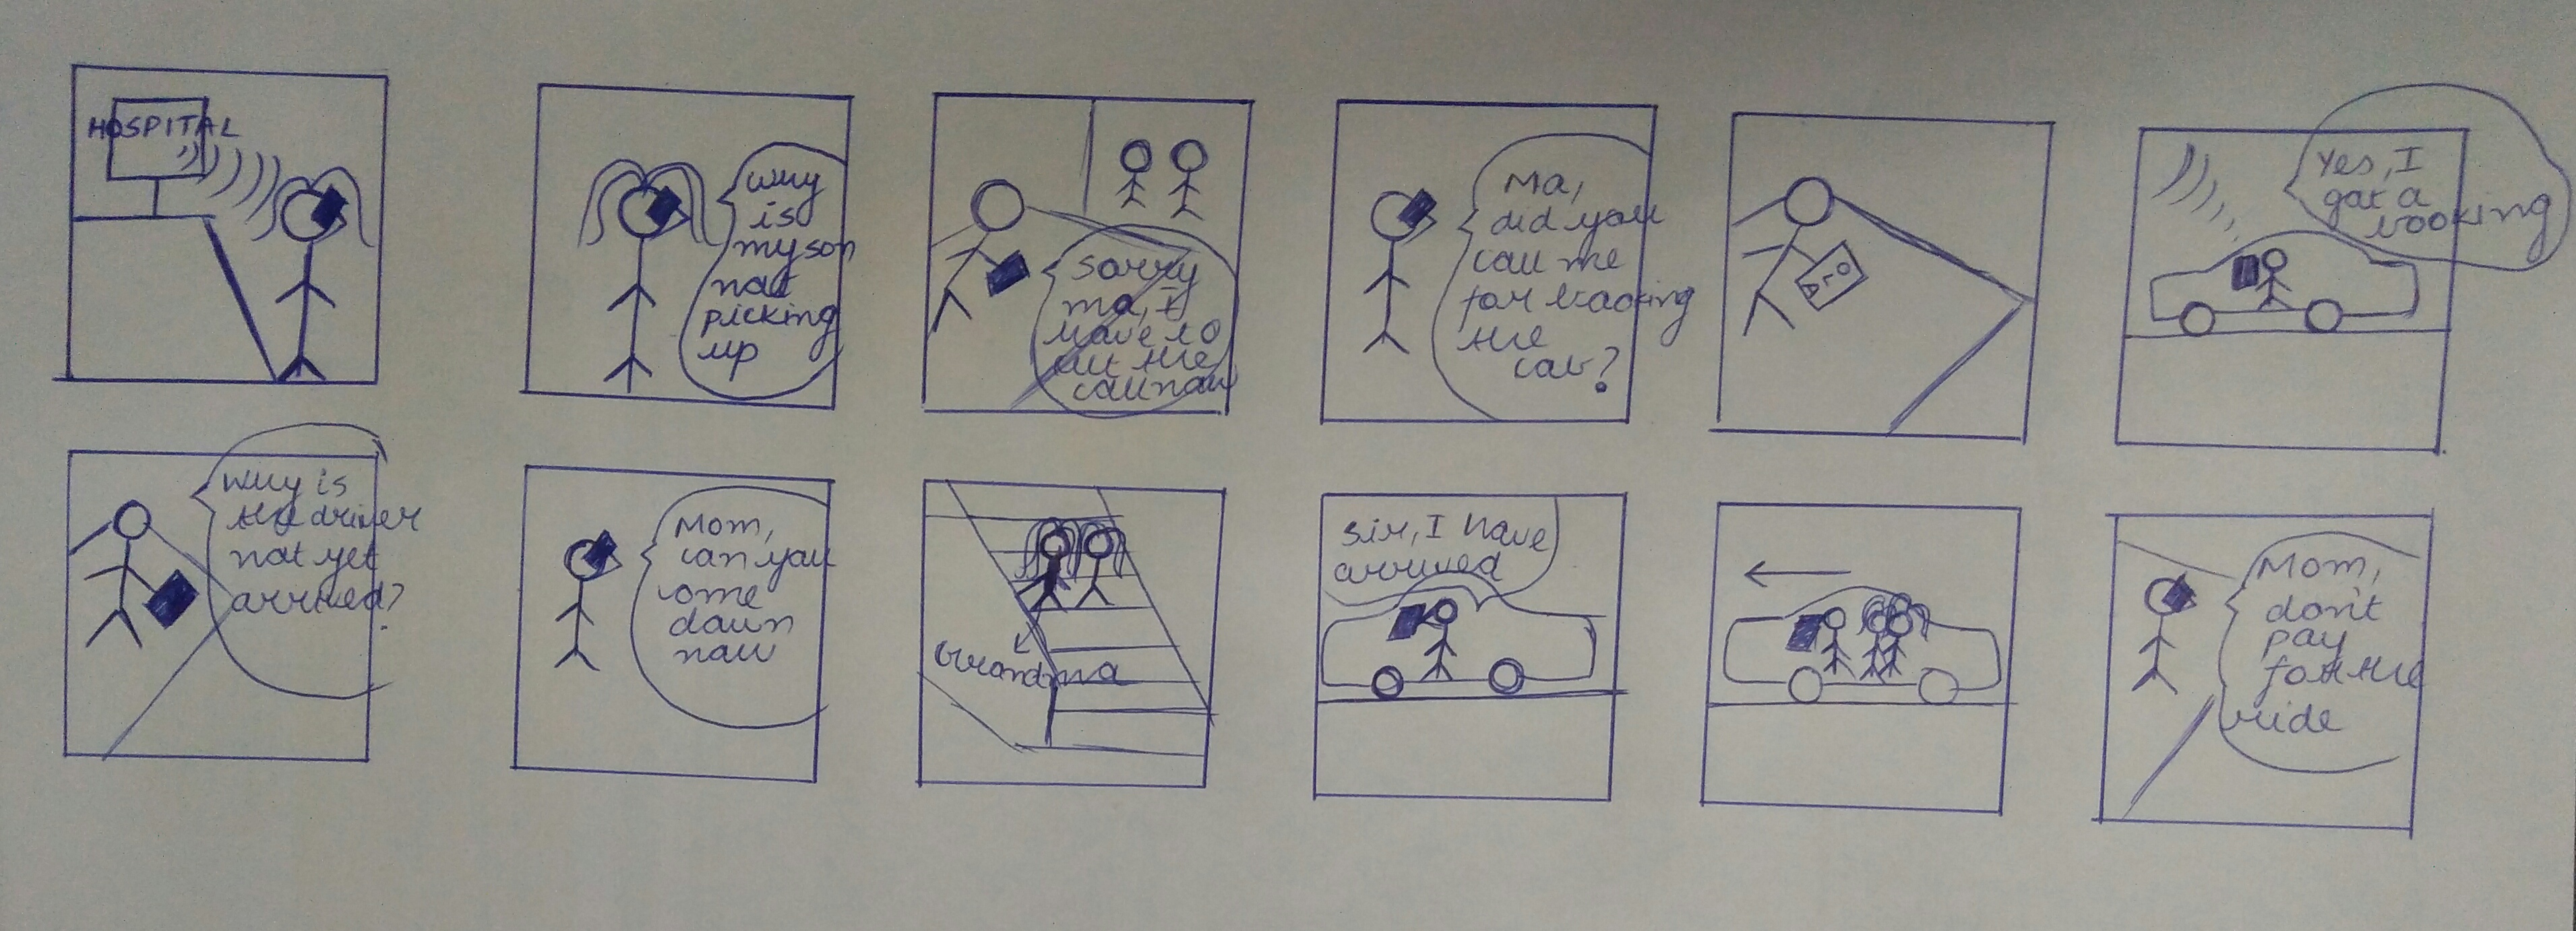 HOSPITAL
Why
is
my son
not
picking
up
Sorry
ma, I
have to
cut the
call now
Ma,
did you
call me
for booking
the
cab?
OLA
Yes, I
got a
booking
Why is
the driver
not yet
arrived?
Mom,
can you
come
down
now
Grandma
Sir, I have
arrived
Mom,
don't
pay
for the
ride